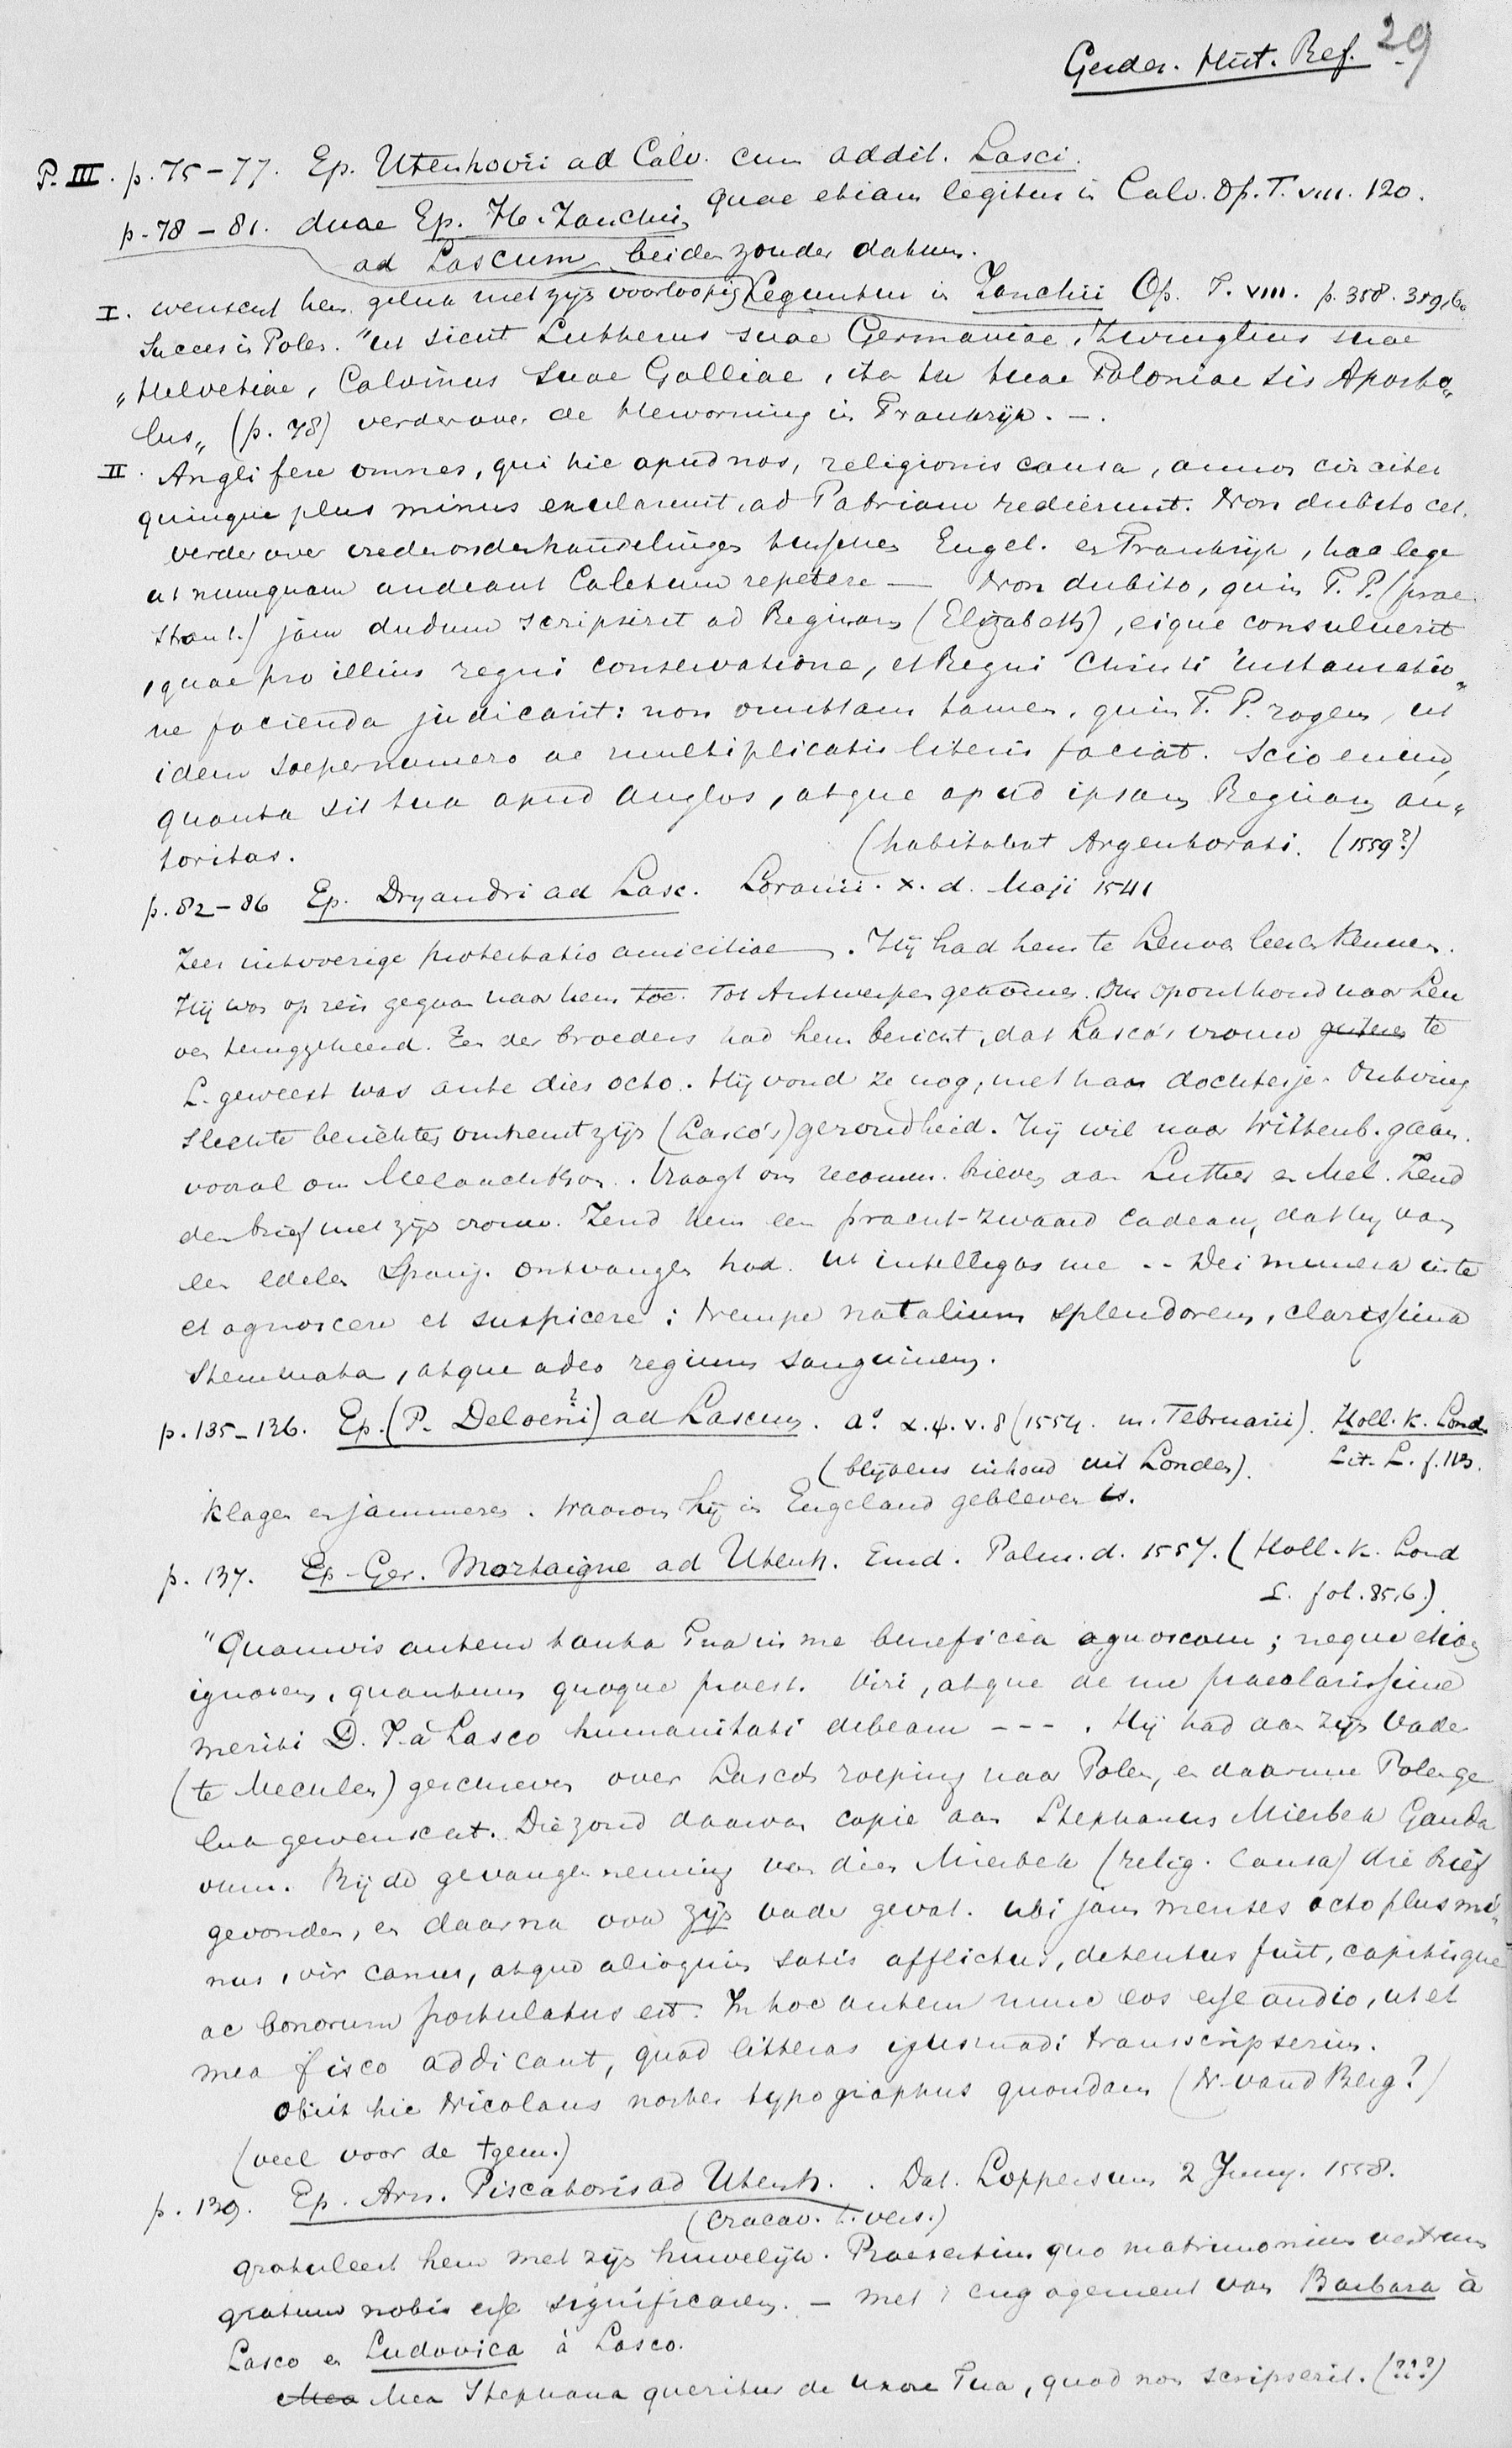 Gerdes. Hist. Ref. 29
P. III. p. 75-77. Ep. Utenhovii ad Calv. cum addit. Lasci.
quae etiam legitur in Calv. Op. T. VIII. 120.
p. 78-81. duae Ep. H. Zanchii
ad Lascum beiden zonder datum.
I. wenscht hem geluk met zijn voorloopig Leguntur in Zanchii Op. T. VIII. p. 358. 359, 60
Succes in Polen. "ut sicut Lutherus suae Germaniae, Zwinglius suae
"Helvetiae, Calvinus suae Galliae, ita tu tuae Poloniae sis Aposto„
lus„ (p. 78) verder over de Hervorming in Frankrijk. —.
II. Angli fere omnes, qui hic apud nos, religionis causa, annos circiter
quinque plus minus exularunt, ad Patriam redierunt. Non dubito cet.
verder over vredesonderhandelingen tusschen Engel. en Frankrijk, hac lege
ut numquam audeant Caletum repetere — Non dubito, quin T. P. (prae
stant.) jam dudum scripserit ad Reginam (Elizabeth), eique consuluerit
, quae pro illius regni conservatione, et Regni Christi instauratio„
ne facienda judicarit: non omittam tamen, quin T. P. rogem, ut
idem saepernumero ac multiplicatis literis faciat. Scio enim,
quanta sit tua apud Anglos, atque apud ipsam Reginam au„
toritas. (habitabat Argentorati. (1559?)
p. 82-86 Ep. Dryandri ad Lasc. Lovanii. X. d. Maji 1541
Zeer uitvoerige protestatio amicitiae. Hij had hem te Leuven leeren kennen.
Hij was op reis gegaan naar hem toe. Tot Antwerpen gekomen. Om oponthoud naar Leu
ven teruggekeerd. Een der broeders had hem bericht, dat Lasco's vrouw te
L. geweest was ante dies octo. Hij vond ze nog, met haar dochtertje. Ontving
slechte berichten omtrent zijn (Lasco's) gezondheid. Hij wil naar Wittenb. gaan.
vooral om Melanchthon. Vraagt om recomm. brieven aan Luther en Mel. Zend
den brief met zijn vrouw. Zend hem een pracht-zwaard cadeau, dat hij van
een edelen Spanj. ontvangen had. Ut intelligas me -- Dei munera in te
et agnoscere et suspicere: Nempe natalium splendorem, clarissima
stemmata, atque adeo regium sanguinem.
p. 135-136. Ep. (P. Deloeni?) ad Lascum. a° (1554. m. Februarii). Holl. K. Lond.
(blijkens inhoud uit Londen). Lit. L. f. 113.
Klagen en jammeren. Waarom hij in Engeland gebleven is.
p. 137. Ep. Ger. Mortaigne ad Utenh. Emd. Palm. d. 1557. (Holl. K. Lond
L. fol. 85, 6.)
"Quamvis autem tanta Tua in me beneficia agnoscam; neque etiam
ignorem, quantum quoque praest. Viri, atque de me praeclarissime
meriti D. J. à Lasco humanitati debeam ---. Hij had aan zijn Vader
(te Mechelen) geschreven over Lasco's roeping naar Polen, en daarmee Polen ge
luk gewenscht. Die zond daarvan copie aan Stephanus Mierbek Ganda
vum. Bij de gevangenneming van dien Mierbek (relig. causa) die brief
gevonden, en daarna ook zijn vader gevat. ubi jam menses octo plus mi„
nus, vir canus, atque alioquin satis afflictus, detentus fuit, capitisque
ac bonorum postulatus est. In hoc autem nunc eos esse audio, ut et
mea fisco addicant, quod litteras ejusmodi transscripserim.
obiit hic Nicolaus noster typographus quondam (N. vand Berg?)
(veel voor de †gem.)
p. 139. Ep. Arn. Piscatoris ad Utenh. Dat. Loppersum 2 Juny. 1558.
(Cracov. t. vers.)
gratuleert hem met zijn huwelijk. Praesertim quo matrimonium vestrum
gratum nobis esse significarem. — met 't engagement van Barbara à
Lasco en Ludovica à Lasco.
Mea Mea Stephana queritur de uxore Tua, quod non scripserit. (???)